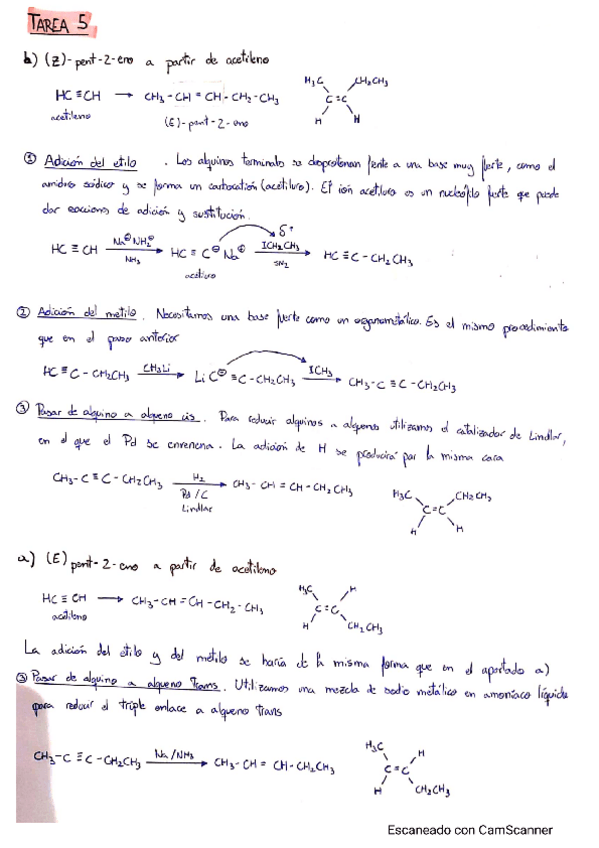 TAREA 5
b) (Z)-pent-2-eno a partir de acetileno
HC≡CH → CH3-CH=CH-CH2-CH3
acetileno (E)-pent-2-eno
H3C CH2CH3
C=C
H H
① Adición del etilo. Los alquinos terminales se desprotonan frente a una base muy fuerte, como el
amiduro sódico y se forma un carbocatión (acetiluro). El ión acetiluro es un nucleófilo fuerte que puede
dar reacciones de adición y sustitución.
HC≡CH Na⊕NH2⊖ NH3 → HC≡C⊖Na⊕ ICH2CH3 SN2 → HC≡C-CH2CH3
δ+
acetiluro
② Adición del metilo. Necesitamos una base fuerte como un organometálico. Es el mismo procedimiento
que en el paso anterior
HC≡C-CH2CH3 CH3Li → Li C⊖≡C-CH2CH3 ICH3 → CH3-C≡C-CH2CH3
③ Pasar de alquino a alqueno cis. Para reducir alquinos a alquenos utilizamos el catalizador de Lindlar,
en el que el Pd se envenena. La adición de H se producirá por la misma cara
CH3-C≡C-CH2CH3 H2 Pd/C Lindlar → CH3-CH=CH-CH2CH3
H3C CH2CH3
C=C
H H
a) (E) pent-2-eno a partir de acetileno
HC≡CH → CH3-CH=CH-CH2-CH3
acetileno
H3C H
C=C
H CH2CH3
La adición del etilo y del metilo se haría de la misma forma que en el apartado a)
③ Pasar de alquino a alqueno trans. Utilizamos una mezcla de sodio metálico en amoníaco líquido
para reducir el triple enlace a alqueno trans
CH3-C≡C-CH2CH3 Na/NH3 → CH3-CH=CH-CH2CH3
H3C H
C=C
H CH2CH3
Escaneado con CamScanner